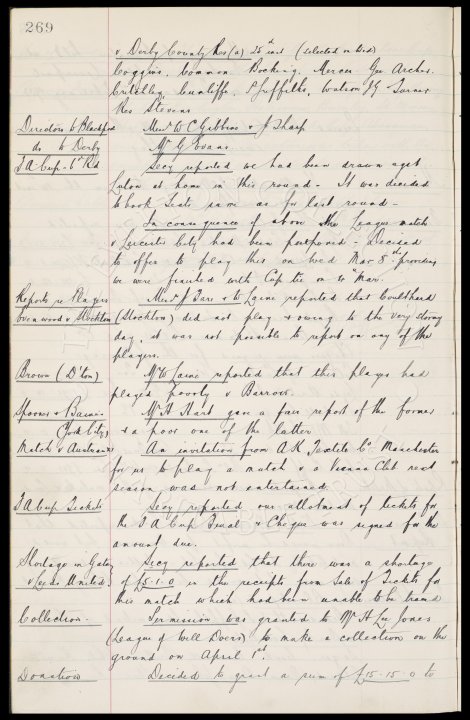 269
v Derby County Res (a) 25th inst (selected on Wed)
Coggins, Common, Bocking, Mercer Geo Archer,
Critchley, Cunliffe, Griffiths, Watson, J G Turner
Res Stevens
Directors to Blackpool Messrs W C Gibbins & J Sharp
do to Derby Mr G Evans
F A Cup - 6th Rd Secy reported we had been drawn agst
Luton at home in this round - It was decided
to book Seats same as for last round -
In consequence of above the League match
v Leicester City had been postponed - Decided
to offer to play this on Wed Mar 8th providing
we were finished with Cup tie on 4th Mar.
Reports re Players Messrs J Farr & W Laine reported that Coulthard
Evenwood v Stockton (Stockton) did not play & owing to the very stormy
day, it was not possible to report on any of the
players.
Brown (D'ton) Mr W Laine reported that this player had
played poorly v Barrow.
Spooner & Baines Mr A Hart gave a fair report of the former
York City & a poor one of the latter
Match v Austrians An invitation from A K Textile Co Manchester
for us to play a match v a Vienna Club next
season was not entertained.
F A Cup Tickets Secy reported our allotment of tickets for
the F A Cup Final & Cheque was signed for the
amount due.
Shortage in Gate Secy reported that there was a shortage
v Leeds United of £5-1-0 in the receipts from Sale of Tickets for
this match which had been unable to be traced
Collection - Permission was granted to Mr A Lee Jones
(League of Well Doers) to make a collection on the
ground on April 1st.
Donation Decided to grant a sum of £15-15-0 to